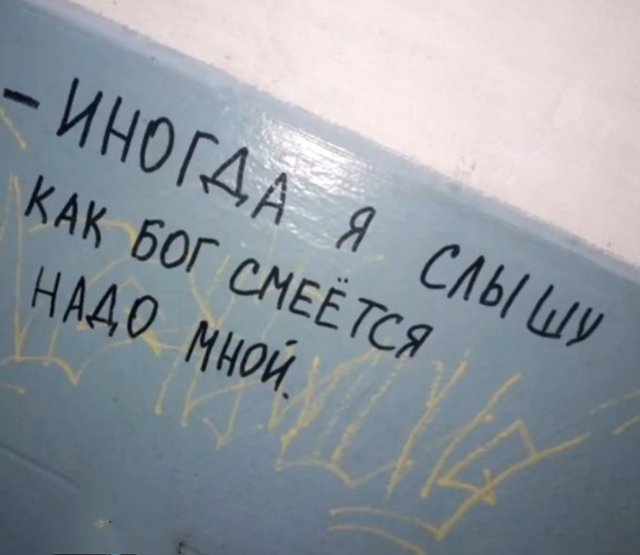 - ИНОГДА Я СЛЫШУ
КАК БОГ СМЕЁТСЯ
НАДО МНОЙ.